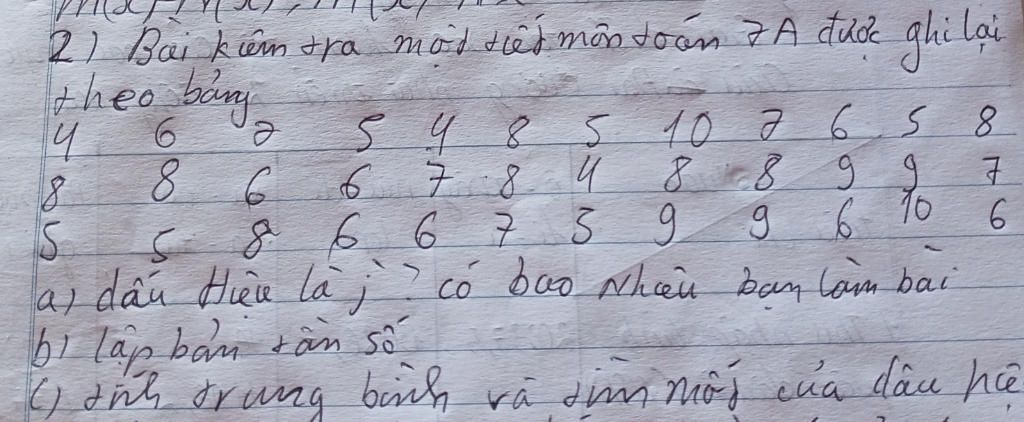 2) Bài kiểm tra một tiết môn toán 7A được ghi lại
theo bảng
4 6 7 5 4 8 5 10 7 6 5 8
8 8 6 6 7 8 4 8 8 9 9 7
5 5 8 6 6 7 5 9 9 6 10 6
a) dấu Hiệu là j? có bao Nhiêu bạn làm bài
b) lập bản tần số
c) tính trung bình và tìm mốt của dấu hiệ